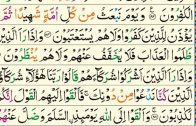 الْكَٰفِرُونَ ۝ وَيَوْمَ نَبْعَثُ مِن كُلِّ أُمَّةٍ شَهِيدًا ثُمَّ
الَّذِينَ كَفَرُوا۟ وَلَا هُمْ يُسْتَعْتَبُونَ ۝ وَإِذَا رَءَا الَّذِينَ
ظَلَمُوا۟ الْعَذَابَ فَلَا يُخَفَّفُ عَنْهُمْ وَلَا هُمْ يُنظَرُونَ
وَإِذَا رَءَا الَّذِينَ أَشْرَكُوا۟ شُرَكَآءَهُمْ قَالُوا۟ رَبَّنَا هَٰٓؤُلَآءِ شُرَكَآؤُنَا
الَّذِينَ كُنَّا مِن دُونِكَ فَأَلْقَوْا۟ إِلَيْهِمُ الْقَوْلَ إِنَّكُمْ
وَأَلْقَوْا۟ إِلَى اللَّهِ يَوْمَئِذٍ السَّلَمَ وَضَلَّ عَنْهُم